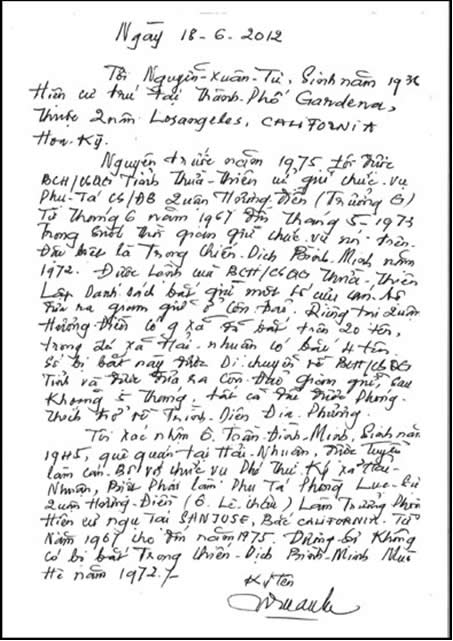 Ngày 18-6-2012
Tôi Nguyễn-Xuân-Tư, Sinh năm 193
Hiện cư trú tại Thành-Phố Gardena,
thuộc quận Losangeles, CALIFORNIA
Hoa-Kỳ.
Nguyên trước năm 1975 tôi được
BCH/CSQG Tỉnh Thừa-Thiên cử giữ chức vụ
Phụ-Tá CS/ĐB Quận Hương-Điền (Trưởng G)
Từ tháng 6 năm 1967 đến tháng 5-1973
Trong suốt thời gian giữ chức vụ nói trên.
Đặc biệt là Trong Chiến-Dịch Bình-Minh năm
1972. Được Lệnh của BCH/CSQG Thừa-Thiên
Lập Danh sách bắt giữ một số
đưa ra giam giữ ở Côn Đảo. Riêng tại Quận
Hương-Điền có 9 xã đã bắt trên 20 tên,
trong đó xã Hải-nhuận có bắt 4 tên.
Số bị bắt này được Di chuyển về BCH/CSQG
Tỉnh và được đưa ra Côn Đảo giam giữ, sau
Khoảng 5 tháng, tất cả đã được Phóng-
thích trở về Trình-Diện Địa-Phương.
Tôi xác nhận Ô. Trần-Đình-Minh, Sinh năm
1945, quê quán tại Hải-Nhuận, được Tuyển
làm cán-Bộ với chức vụ Phó Thư Ký xã Hải-
Nhuận, Biệt Phái làm Phụ Tá Phòng
Quận Hương-Điền (Ô. Lê Châu) Làm Trưởng Phòng
Hiện cư ngụ Tại SANJOSE, Bắc CALIFORNIA. Từ
Năm 1967 cho đến năm 1975. Đương-sự Không
có bị bắt Trong Chiến-Dịch Bình-Minh Mùa
Hè năm 1972./-
Ký tên